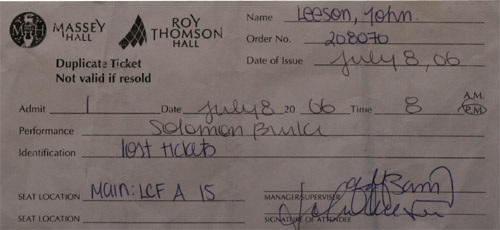 MASSEY HALL
ROY THOMSON HALL
Duplicate Ticket
Not valid if resold
Name Leeson, John.
Order No. 208070
Date of Issue July 8, 06
A.M.
Admit 1 Date July 8 20 06 Time 8 P.M.
Performance Solomon Burke
Identification lost tickets
SEAT LOCATION Main: LCF A 15
MANAGER/SUPERVISER
SEAT LOCATION
SIGNATURE OF ATTENDEE